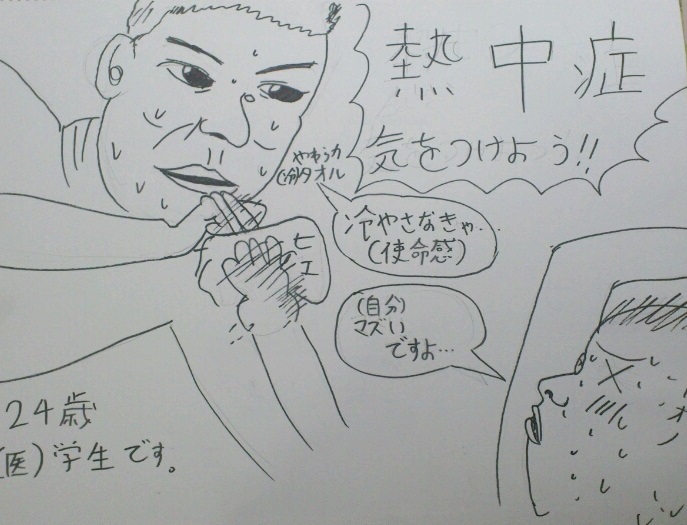 熱中症
気をつけよう!!
やわらか
タオル
冷やさなきゃ…
(使命感)
ヒエ
ヒエ
(自分)
マズい
ですよ…
24歳
(医)学生です。